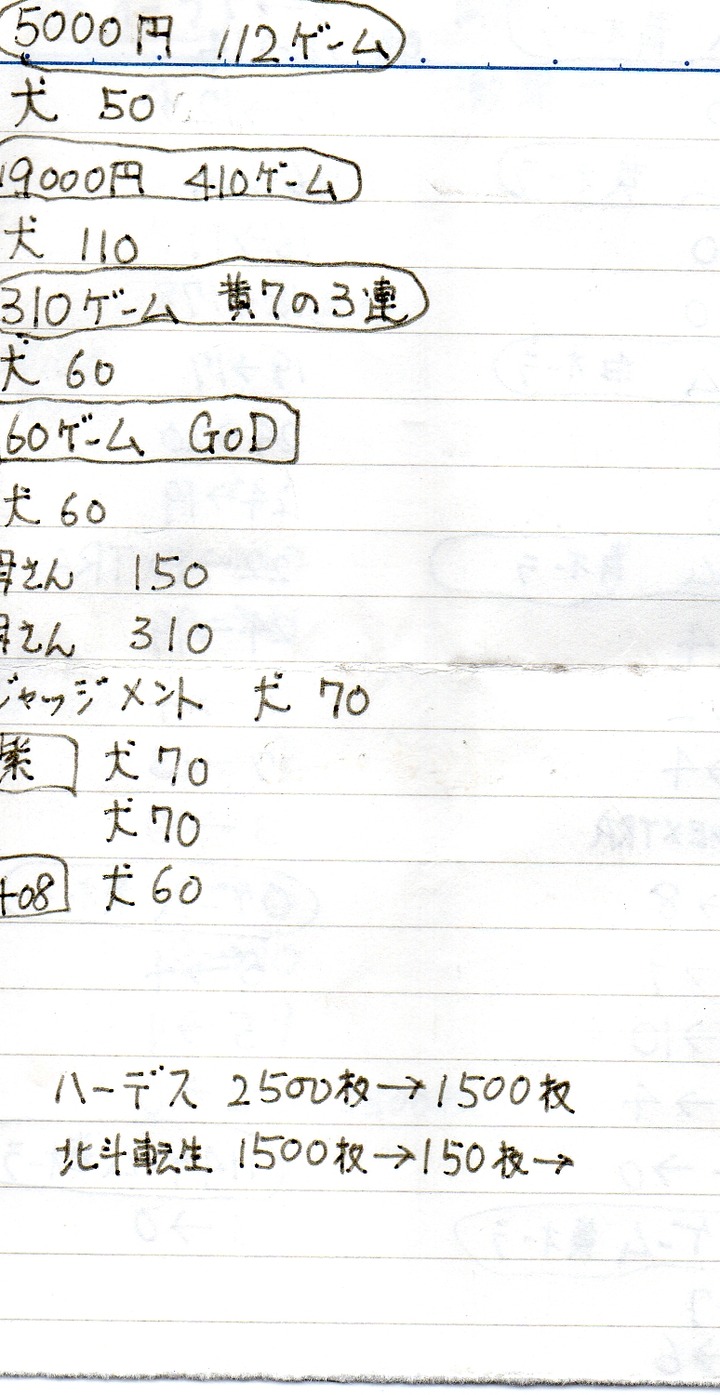 5000円 112ゲーム
犬 50
19000円 410ゲーム
犬 110
310ゲーム 黄7の3連
犬 60
60ゲーム GoD
犬 60
母さん 150
母さん 310
ジャッジメント 犬 70
紫 犬 70
犬 70
+08 犬 60
ハーデス 2500枚→1500枚
北斗転生 1500枚→150枚→